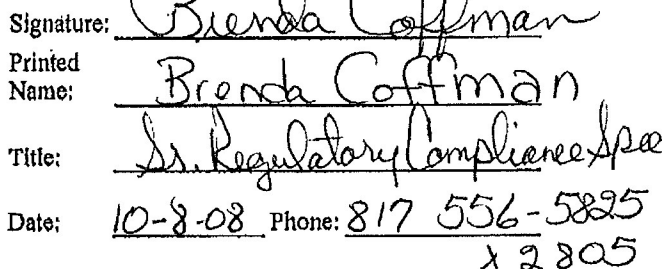 Signature: Brenda Coffman
Printed
Name: Brenda Coffman
Title: Sr. Regulatory Compliance Spec
Date: 10-8-08 Phone: 817 556-5825
x 2805